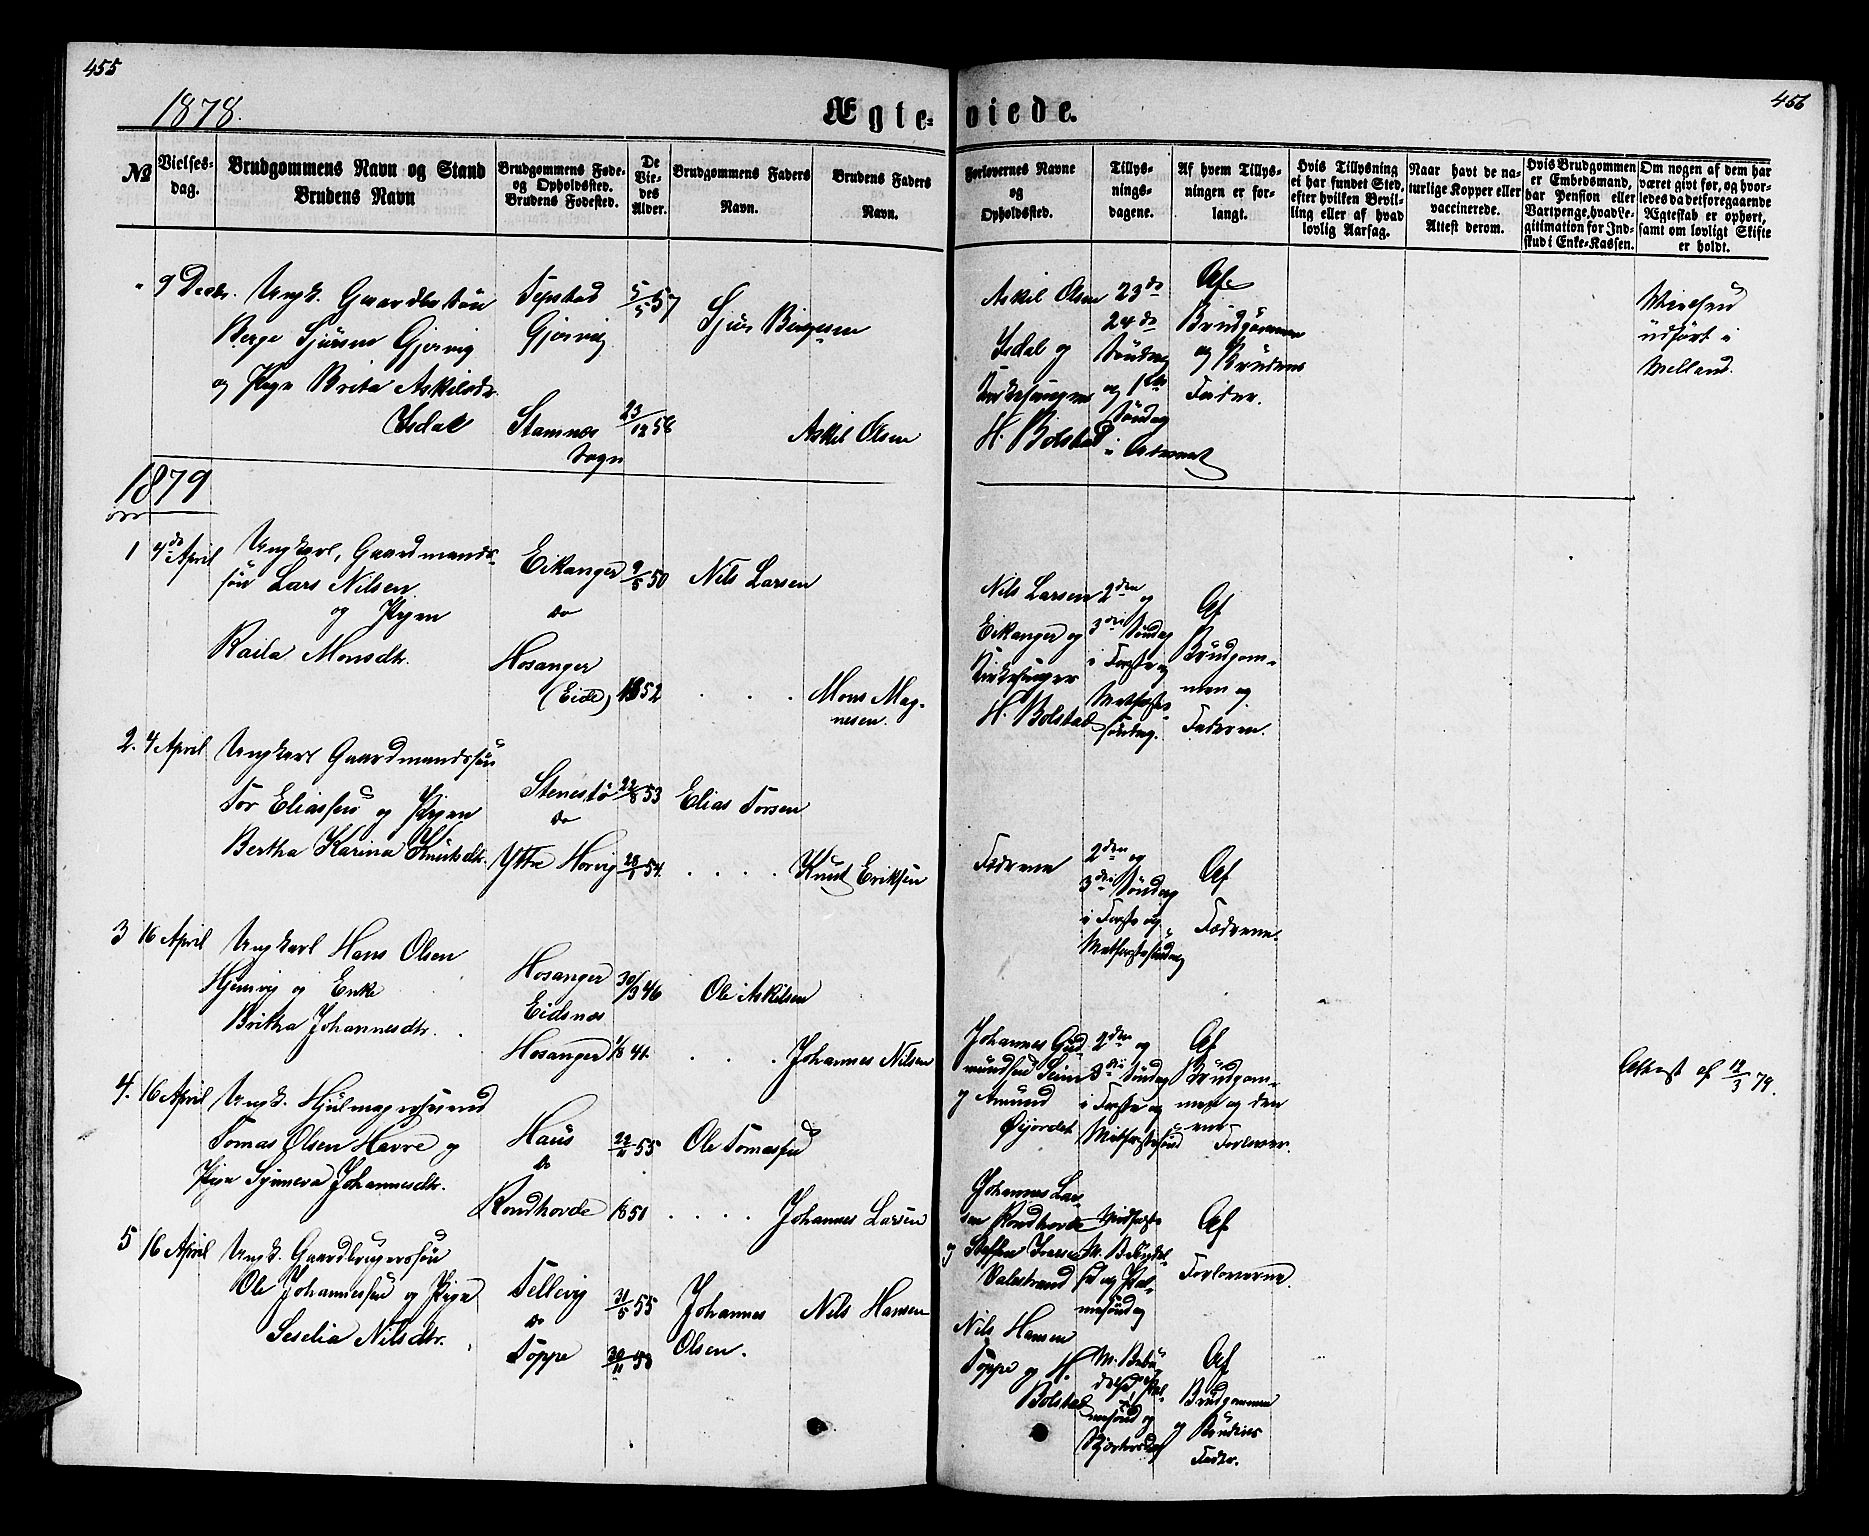 455
1878.
Ægte-viede.
456
№
Vielses-dag.
Brudgommens Navn og Stand
Brudens Navn
Brudgommens Føde- og Opholdssted.
Brudens Fødested.
De Viedes Alder.
Brudgommens Faders Navn.
Brudens Faders Navn.
Forlovernes Navne og Opholdssted.
Tillysningsdagene.
Af hvem Tillysningen er forlangt.
Hvis Tillysning ei har fundet Sted, efter hvilken Bevilling eller af hvad lovlig Aarsag.
Naar havt de naturlige Kopper eller vaccinerede. Attest derom.
Hvis Brudgommen er Embedsmand, har Pension eller Vartpenge, hvad Legitimation for Indskud i Enke-Kassen.
Om nogen af dem har været givt før, og hvorledes da det foregaaende Ægteskab er ophørt, samt om lovligt Skifte er holdt.
" 9 Decbr. Ungk. Gaardbr. Søn
Berge Sjursen Gjervig
og Pige Brita Askilsdr.
Isdal
Gjervig
Stamnes
Sogn
5/5 57
23/12 56
Sjur Bergesen
Askil Olsen
Askil Olsen
Isdal og
Kirkesanger
H. Bolstad
23de
24de
Søndag
og 1ste
Søndag
i Advent
Af
Brudgommen
og Brudens
Fader.
Vielsen
udført i
1879
1 4de April Ungkarl, Gaardmands-
søn Lars Nilsen
og Pigen
Raila Monsdtr.
Eikanger
do
Hosanger
(Eide)
9/5 50
1852
Nils Larsen
Mons Mag-
nesen.
Nils Larsen
Eikanger og
Kirkesanger
H. Bolstad
2den og
3die Søndag
i Faste og
Midfaste-
søndag.
Af
Brudgom-
men og
Faderen.
2. 4 April Ungkarl Gaardmandssøn
Tor Eliassen og Pigen
Bertha Karina Knutsdtr.
Stenestø
do
Yttre Horvig
53
54
Elias Torsen
Knut Eriksen
Fædrene
2den og
3die Søndag
i Faste og
Midfastesøndag
Af
Fædrene.
3 16 April Ungkarl Hans Olsen
Hjelmvig og Enke
Britha Johannesdtr.
Hosanger
Eidsnes
Hosanger
30/3 46
41.
Ole Askilsen
Johannes Nilsen
Johannes Gud-
mundsen Seim
og Amund
Øyjordet
2den og
3die Søndag
i Faste og
Midfastesønd
Af
Brudgom-
men og den
ene Forlover.
Attest af 12/3 79.
4. 16 April Ungk. Hjulmagersvend
Tomas Olsen Havre og
Pige Synneva Johannesdtr.
Haus
do
Rondhovde
55
1851
Ole Tomassen
Johannes Larsen
Johannes Lar-
sen Rondhovde
og Steffen Iversen
Valestrand
Midfaste
M. Bebudel-
se og Pal-
mesøndag
Af
Forloverne.
5 16 April Ungk. Gaardbrugersøn
Ole Johannessen og Pige
Seselia Nilsdtr.
Tellevig
do
Toppe
31/5 55
53
Johannes
Olsen.
Nils Hansen
Nils Hansen
Toppe og H.
Bolstad
M. Bebu-
delse, Pal-
mesønd og
Skjærtorsdag
Af
Brudgommen
og Brudens
Fader.